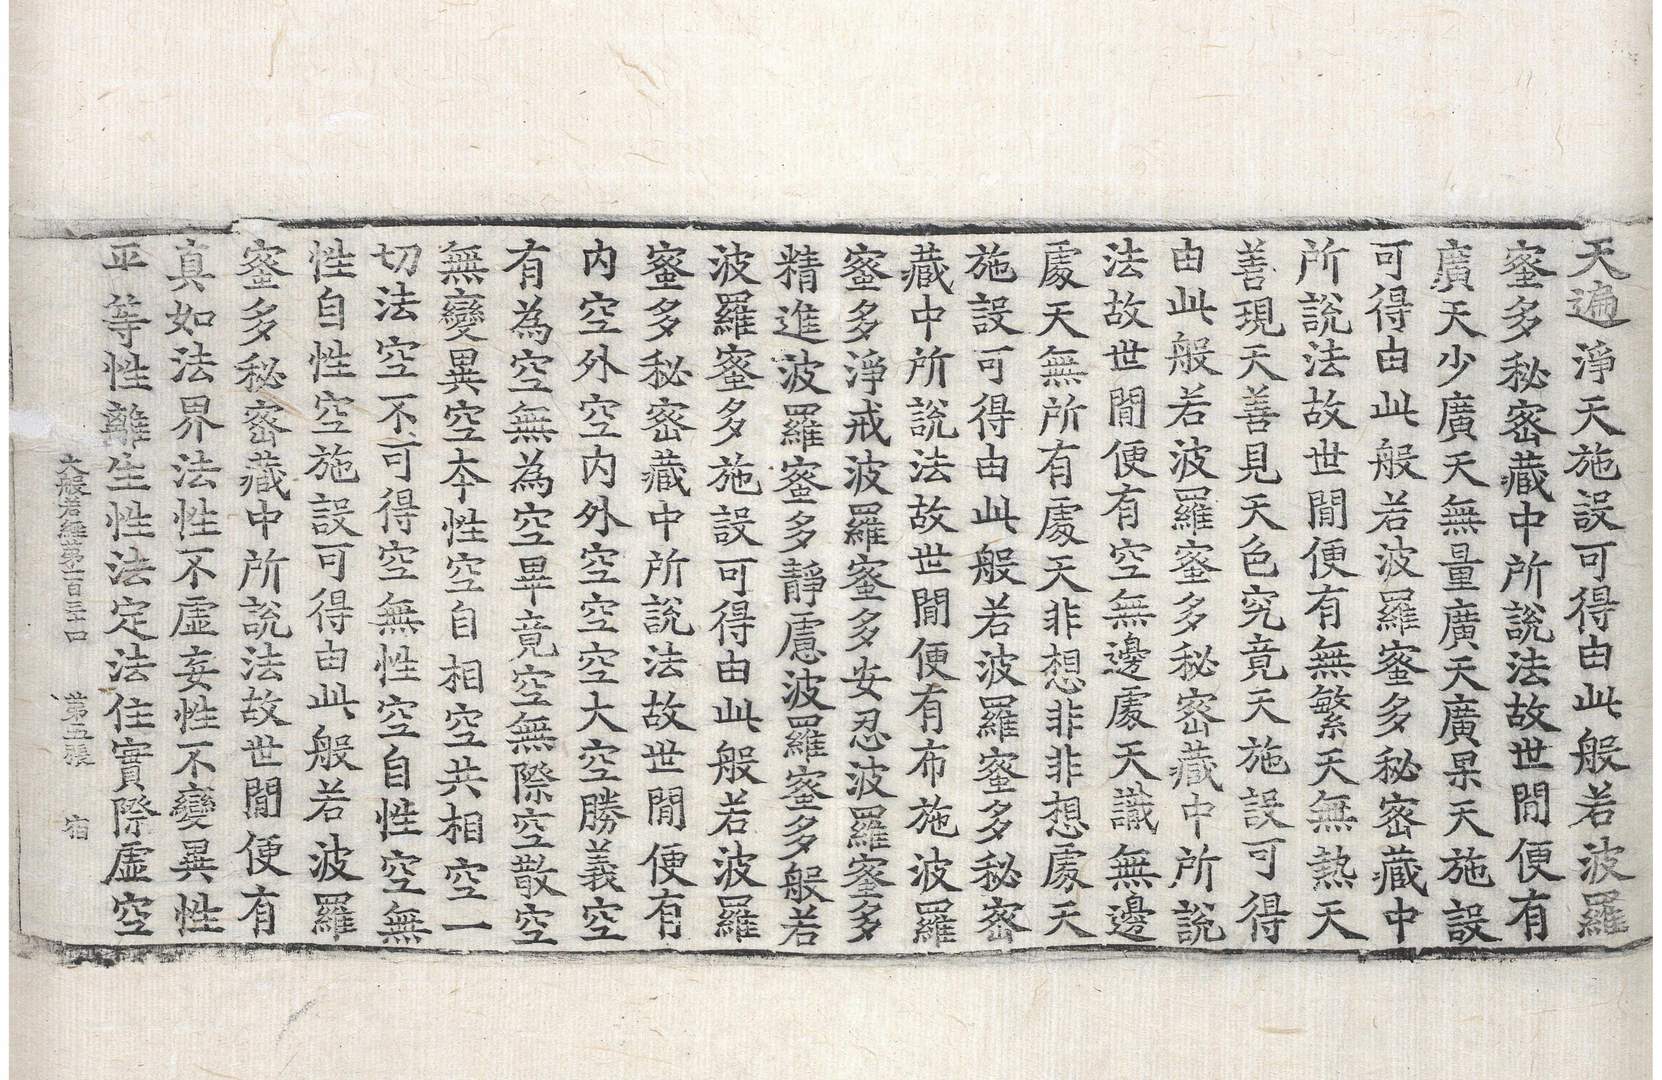 天遍淨天施設可得由此般若波羅
蜜多秘密藏中所說法故世間便有
廣天少廣天無量廣天廣果天施設
可得由此般若波羅蜜多秘密藏中
所說法故世間便有無繁天無熱天
善現天善見天色究竟天施設可得
由此般若波羅蜜多秘密藏中所說
法故世間便有空無邊處天識無邊
處天無所有處天非想非非想處天
施設可得由此般若波羅蜜多秘密
藏中所說法故世間便有布施波羅
蜜多淨戒波羅蜜多安忍波羅蜜多
精進波羅蜜多靜慮波羅蜜多般若
波羅蜜多施設可得由此般若波羅
蜜多秘密藏中所說法故世間便有
內空外空內外空空空大空勝義空
有為空無為空畢竟空無際空散空
無變異空本性空自相空共相空一
切法空不可得空無性空自性空無
性自性空施設可得由此般若波羅
蜜多秘密藏中所說法故世間便有
真如法界法性不虛妄性不變異性
平等性離生性法定法住實際虛空
大般若經第一百三 第五張 宿